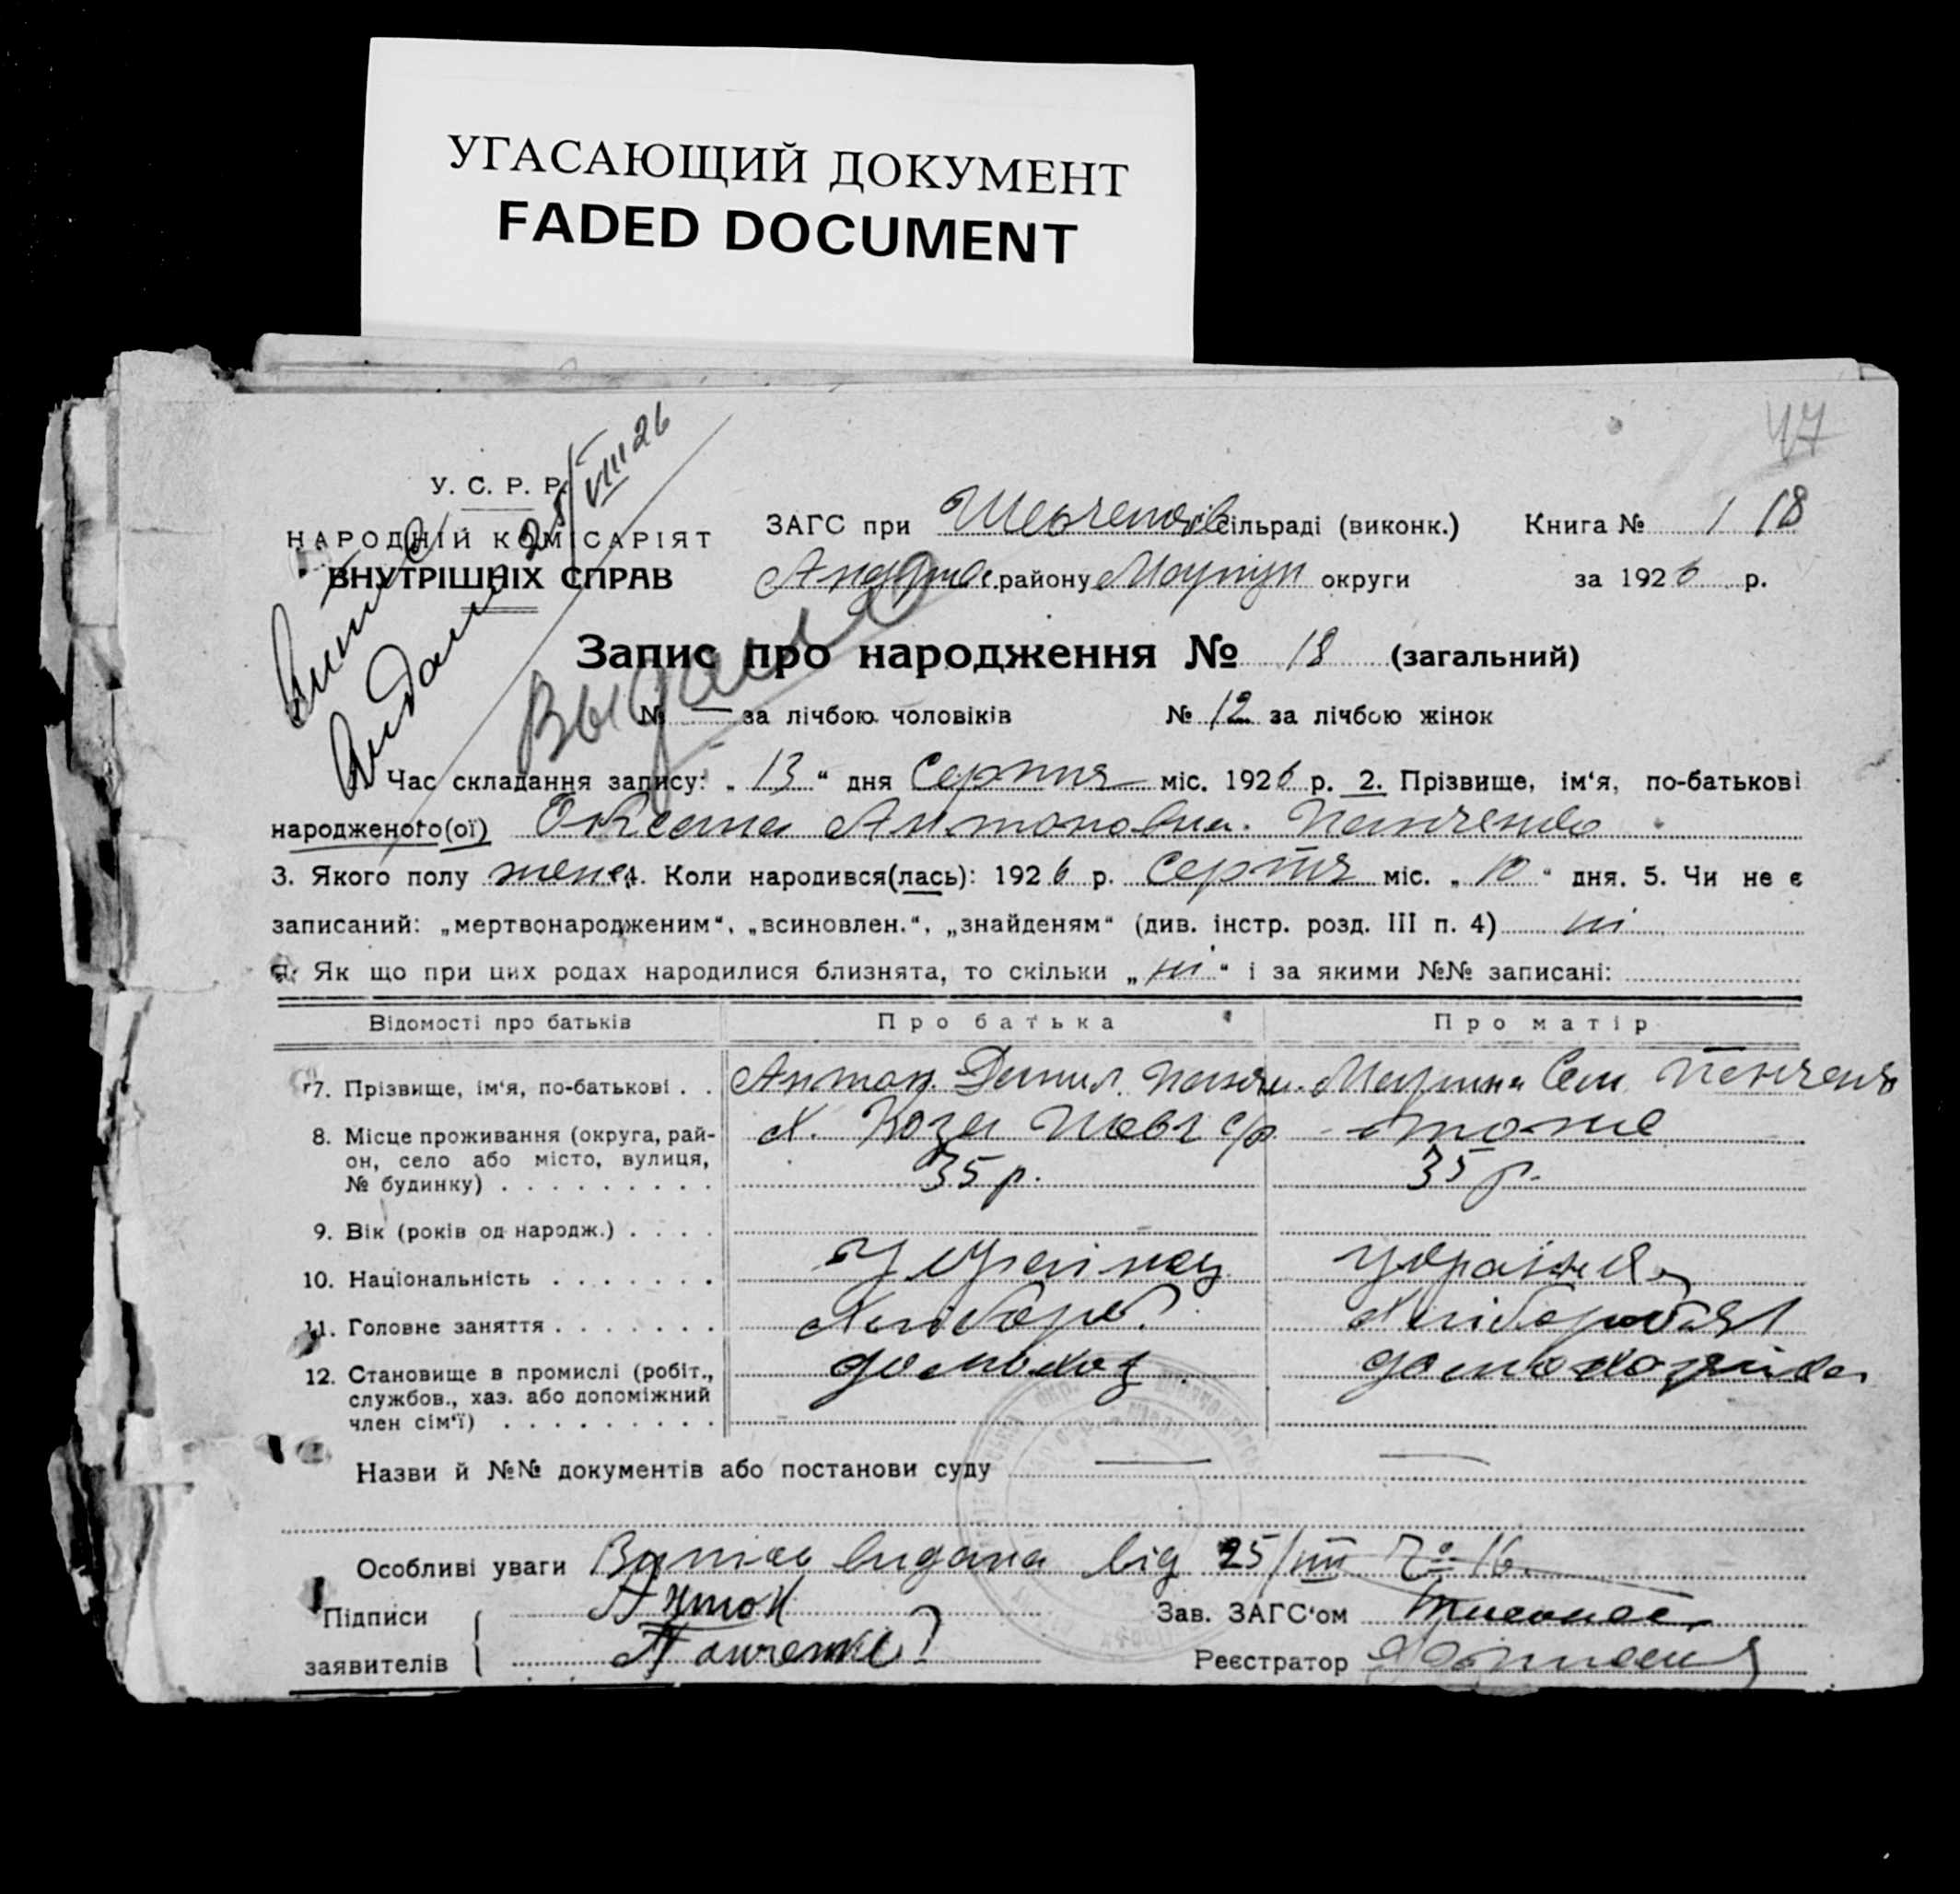 УГАСАЮЩИЙ ДОКУМЕНТ
FADED DOCUMENT
47
У. С. Р. Р.
НАРОДНІЙ КОМІСАРІЯТ
ВНУТРІШНІХ СПРАВ
25/VIII 26
Видана
Выдано
ЗАГС при сільраді (виконк.) Книга № 1 18
району округи за 1926 р.
Запис про народження № 18 (загальний)
№ — за лічбою чоловіків № 12 за лічбою жінок
1. Час складання запису: „ 13 “ дня Серпня міс. 1926 р. 2. Прізвище, ім‘я, по-батькові
народженого(ої) Оксана Антоновна. Панченко
3. Якого полу жен. 4. Коли народився(лась): 1926 р. Серпня міс. „ 10 “ дня. 5. Чи не є
записаний: „мертвонародженим“, „всиновлен.“, „знайденям“ (див. інстр. розд. III п. 4) ні
6. Як що при цих родах народилися близнята, то скільки „ ні “ і за якими №№ записані:
Відомості про батьків Про батька Про матір
7. Прізвище, ім‘я, по-батькові . . Антон Данил. Панчен. Марина Сем Панченко
8. Місце проживання (округа, рай- х. Коза Шевч с/р тоже
он, село або місто, вулиця, 35 р. 35 р.
№ будинку) . . . . . . . . .
9. Вік (років од народж.) . . . .
10. Національність . . . . . . . Українец Українка
11. Головне заняття . . . . . . . Хлібороб. Хліборобка
12. Становище в промислі (робіт., домохоз домохазяйка
службов., хаз. або допоміжний
член сім‘ї) . . . . . . . . .
Назви й №№ документів або постанови суду — —
Особливі уваги Витяг видана від 25/VIII № 16.
Підписи Антон Зав. ЗАГС‘ом
заявителів Панченко Реєстратор